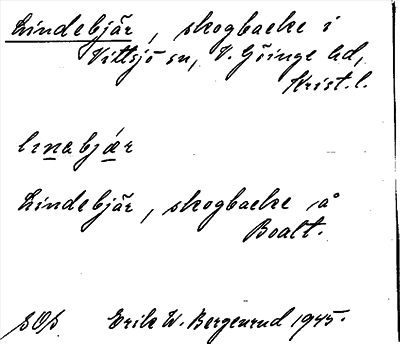 Lindebjär, skogbacke i
Vittsjö sn, V. Göinge hd,
Krist. l.
linabjær
Lindebjär, skogbacke å
Boalt.
SOs Erik W. Bergenrud 1945.